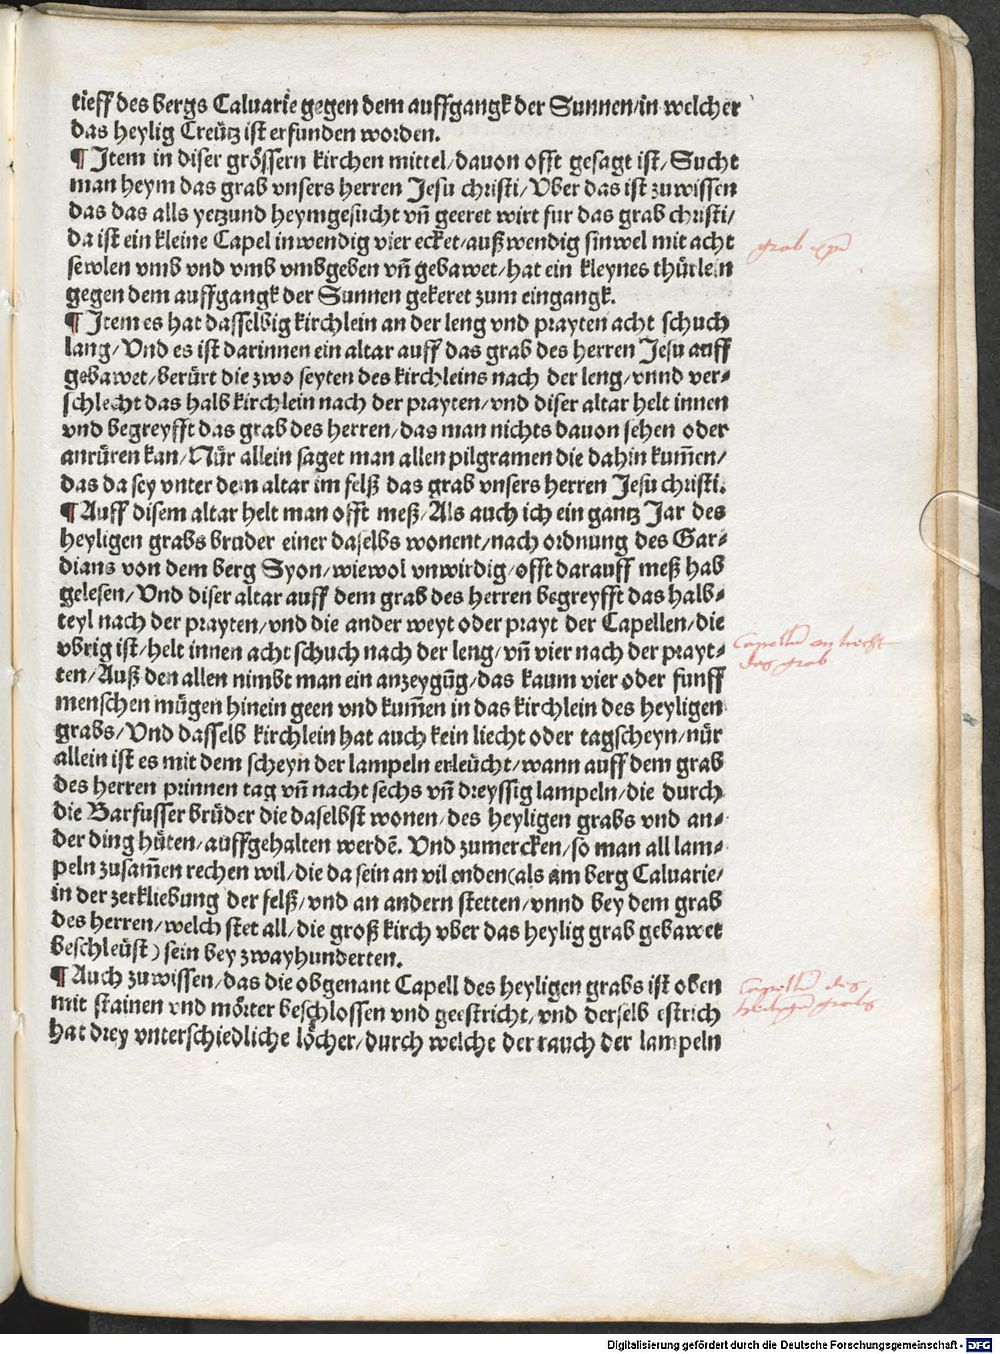 tieff des bergs Caluarie gegen dem auffgangk der Sunnen/in welcher
das heylig Creütz ist erfunden worden.
¶ Item in diser grössern kirchen mittel/dauon offt gesagt ist/Sucht
man heym das grab vnsers herren Jesu christi/Vber das ist zuwissen
das das alls yetzund heymgesucht vn̄ geeret wirt fur das grab christi/
da ist ein kleine Capel inwendig vier ecket/außwendig sinwel mit acht
sewlen vmb vnd vmb vmbgeben vn̄ gebawet/hat ein kleynes thürlein
gegen dem auffgangk der Sunnen gekeret zum eingangk.
¶ Item es hat dasselbig kirchlein an der leng vnd prayten acht schuch
lang/Vnd es ist darinnen ein altar auff das grab des herren Jesu auff
gebawet/berürt die zwo seyten des kirchleins nach der leng/vnnd ver⸗
schlecht das halb kirchlein nach der prayten/vnd diser altar helt innen
vnd begreyfft das grab des herren/das man nichts dauon sehen oder
anrüren kan/Nür allein saget man allen pilgramen die dahin kum̄en/
das da sey vnter dem altar im felß das grab vnsers herren Jesu christi.
¶ Auff disem altar helt man offt meß/Als auch ich ein gantz Jar des
heyligen grabs bruder einer daselbs wonent/nach ordnung des Gar⸗
dians von dem berg Syon/wiewol vnwirdig/offt darauff meß hab
gelesen/Vnd diser altar auff dem grab des herren begreyfft das halb⸗
teyl nach der prayten/vnd die ander weyt oder prayt der Capellen/die
vbrig ist/helt innen acht schuch nach der leng/vn̄ vier nach der prayt⸗
ten/Auß den allen nimbt man ein anzeygūg/das kaum vier oder funff
menschen mügen hinein geen vnd kum̄en in das kirchlein des heyligen
grabs/Vnd dasselb kirchlein hat auch kein liecht oder tagscheyn/nür
allein ist es mit dem scheyn der lampeln erleücht/wann auff dem grab
des herren prinnen tag vn̄ nacht sechs vn̄ dreyssig lampeln/die durch
die Barfusser brüder die daselbst wonen/des heyligen grabs vnd an⸗
der ding hüten/auffgehalten werdē. Vnd zumercken/so man all lam⸗
peln zusam̄en rechen wil/die da sein an vil enden(als am berg Caluarie/
in der zerkliebung der felß/vnd an andern stetten/vnnd bey dem grab
des herren/welch stet all/die groß kirch vber das heylig grab gebawet
beschleüst) sein bey zwayhunderten.
¶ Auch zu wissen/das die obgenant Capell des heyligen grabs ist oben
mit stainen vnd mörter beschlossen vnd geestricht/vnd derselb estrich
hat drey vnterschiedliche löcher/durch welche der rauch der lampeln
grab
des grab
Capelln des
Digitalisierung gefördert durch die Deutsche Forschungsgemeinschaft - DFG